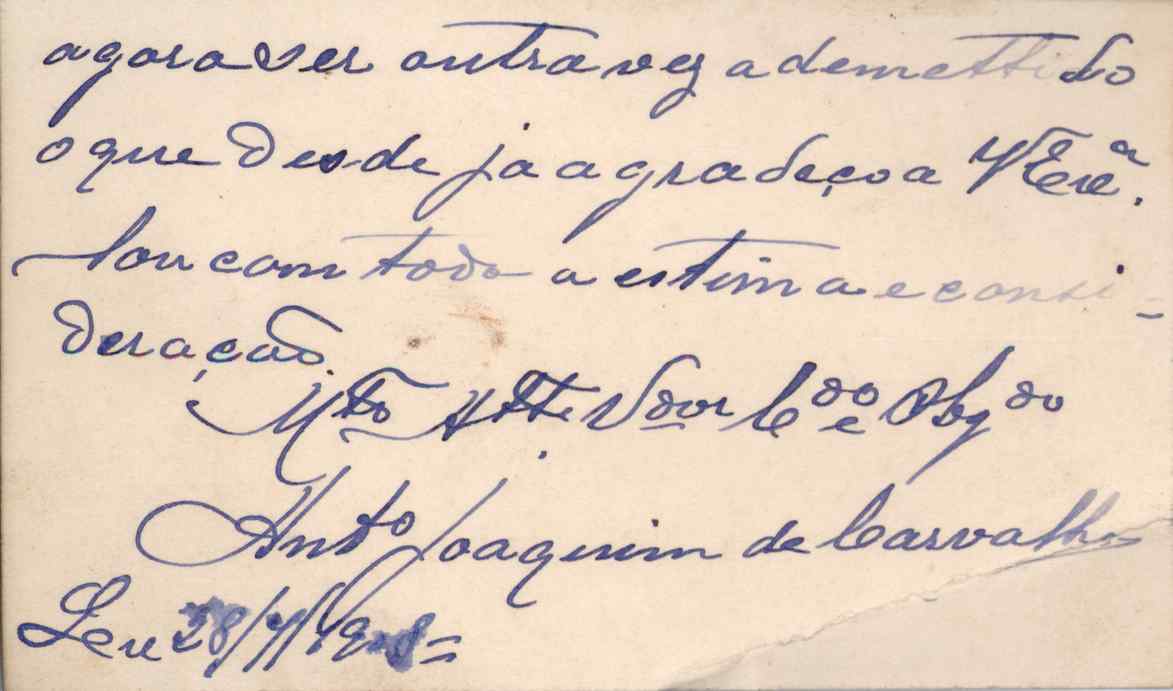 agora ser outra vez ademettido
o que desde ja agradeço a V Exª.
Sou com toda a estima e consi=
deração.
Mto Atte Vdor Cdo e Obgdo
Anto Joaquim de Carvalho
28/7/19